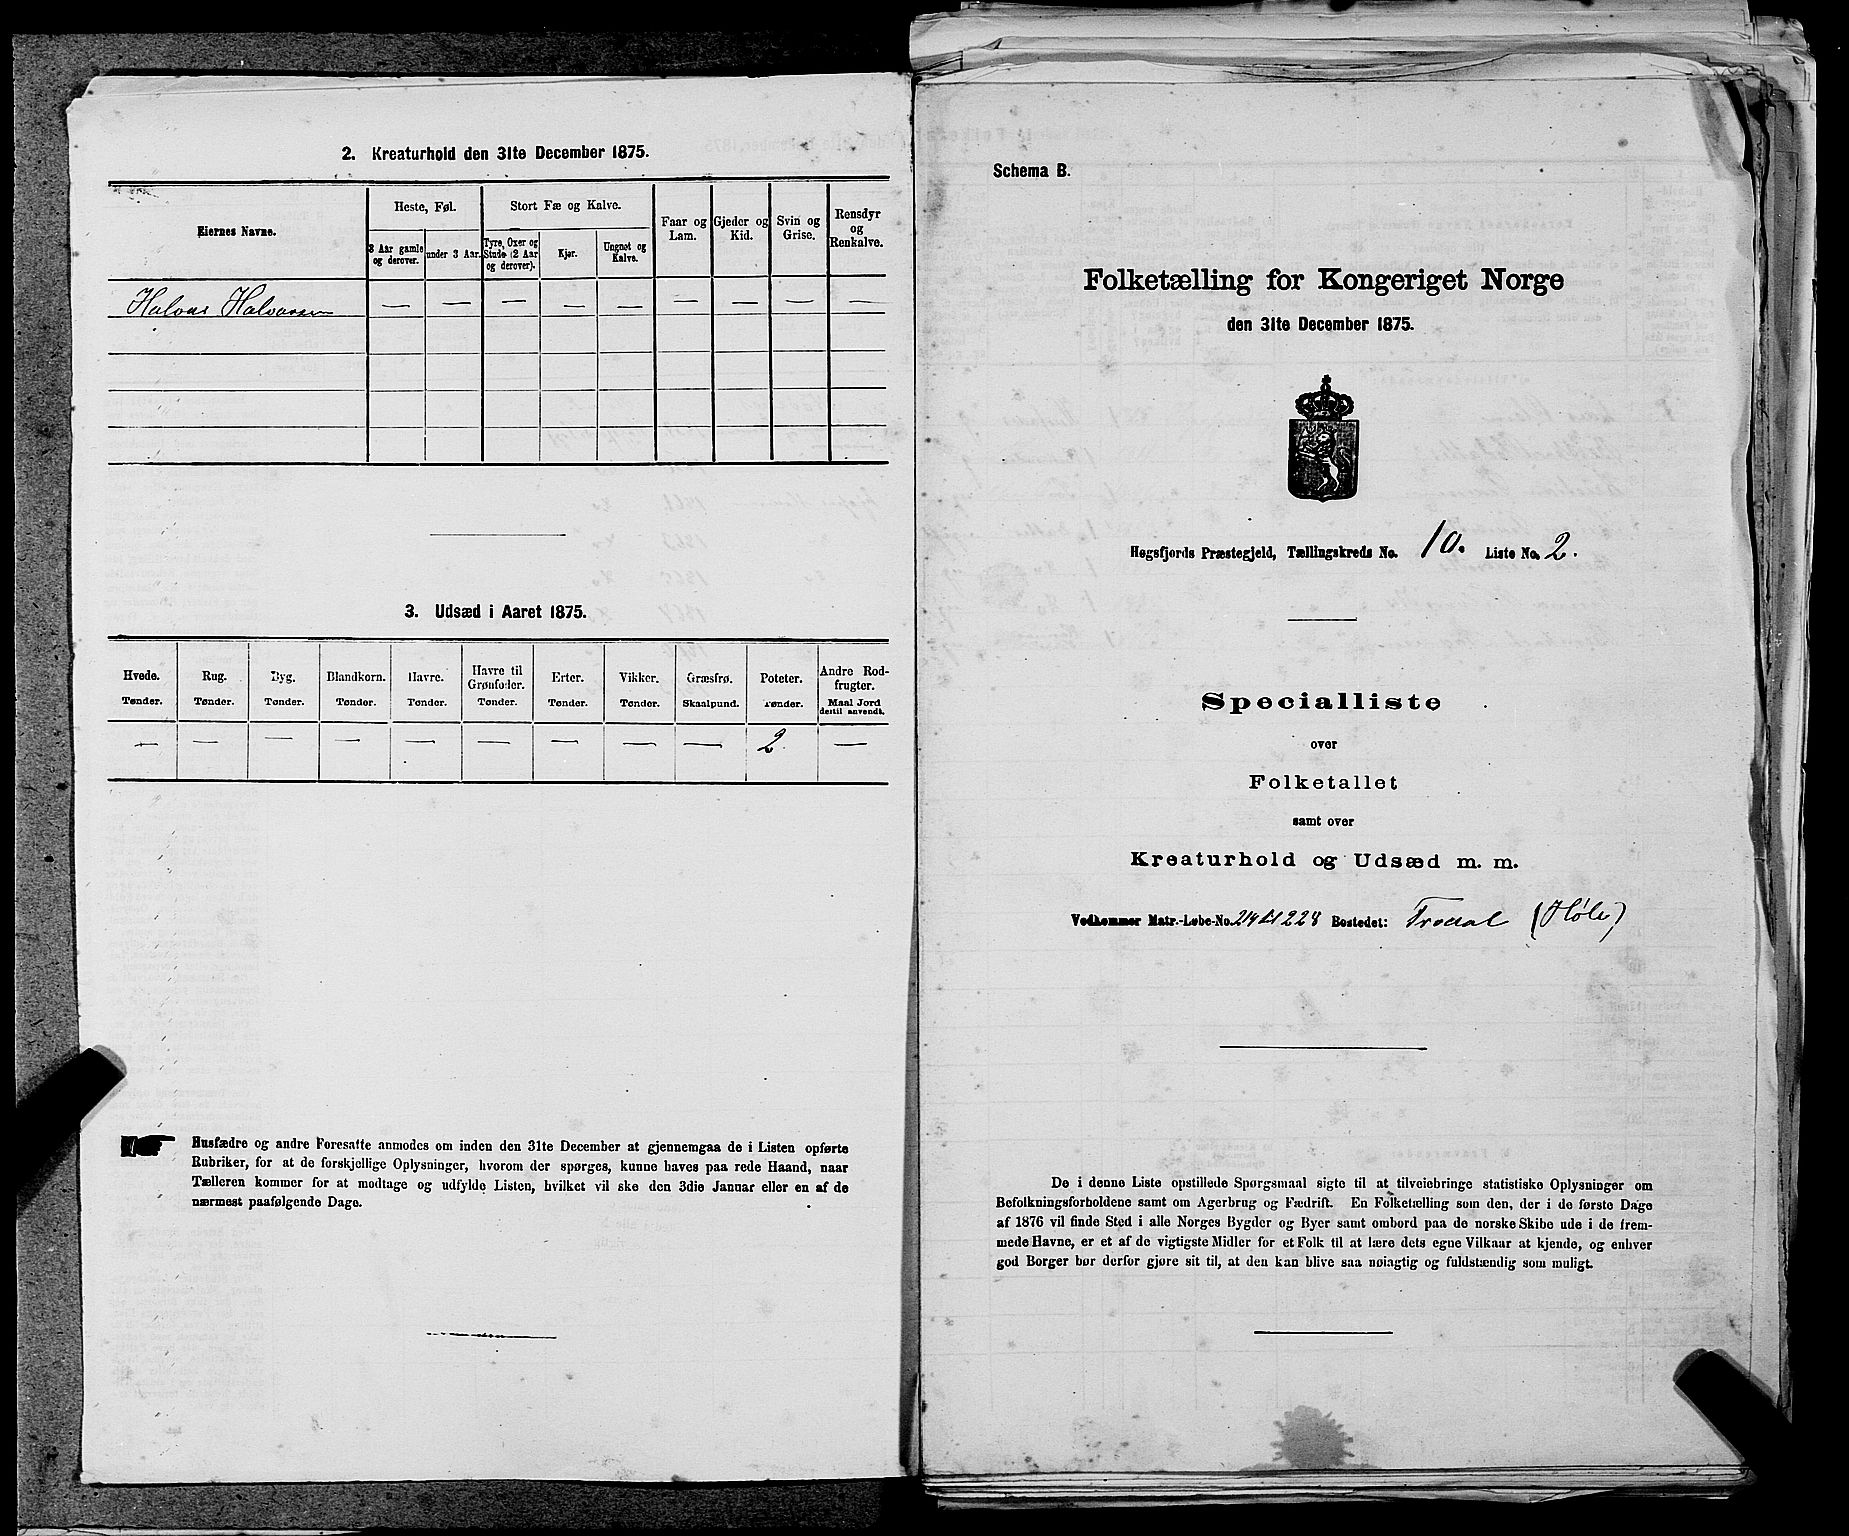 2. Kreaturhold den 31te December 1875.
Eiernes Navne.
Heste, Føl.
Stort Fæ og Kalve.
Faar og Lam.
Gjeder og Kid.
Svin og Grise.
Rensdyr og Renkalve.
3 Aar gamle og derover.
under 3 Aar.
Tyre, Oxer og Stude (2 Aar og derover).
Kjør.
Ungnøt og Kalve.
Halvor Halvorsen — — — — — — — — —
3. Udsæd i Aaret 1875.
Hvede. Rug. Byg. Blandkorn. Havre. Havre til Grønfoder. Erter. Vikker. Græsfrø. Poteter. Andre Rodfrugter.
Tønder. Tønder. Tønder. Tønder. Tønder. Tønder. Tønder. Tønder. Skaalpund. Tønder. Maal Jord dertil anvendt.
— — — — — — — — — 2. —
Husfædre og andre Foresatte anmodes om inden den 31te December at gjennemgaa de i Listen opførte
Rubriker, for at de forskjellige Oplysninger, hvorom der spørges, kunne haves paa rede Haand, naar
Tælleren kommer for at modtage og udfylde Listen, hvilket vil ske den 3die Januar eller en af de
nærmest paafølgende Dage.
Schema B.
Folketælling for Kongeriget Norge
den 31te December 1875.
Høgsfjords Præstegjeld, Tællingskreds No. 10. Liste No. 2.
Specialliste
over
Folketallet
samt over
Kreaturhold og Udsæd m. m.
Vedkommer Matr.-Løbe-No. 228 Bostedet: Trodal (Høle)
De i denne Liste opstillede Spørgsmaal sigte til at tilveiebringe statistiske Oplysninger om
Befolkningsforholdene samt om Agerbrug og Fædrift. En Folketælling som den, der i de første Dage
af 1876 vil finde Sted i alle Norges Bygder og Byer samt ombord paa de norske Skibe ude i de frem-
mede Havne, er et af de vigtigste Midler for et Folk til at lære dets egne Vilkaar at kjende, og enhver
god Borger bør derfor gjøre sit til, at den kan blive saa nøiagtig og fuldstændig som muligt.